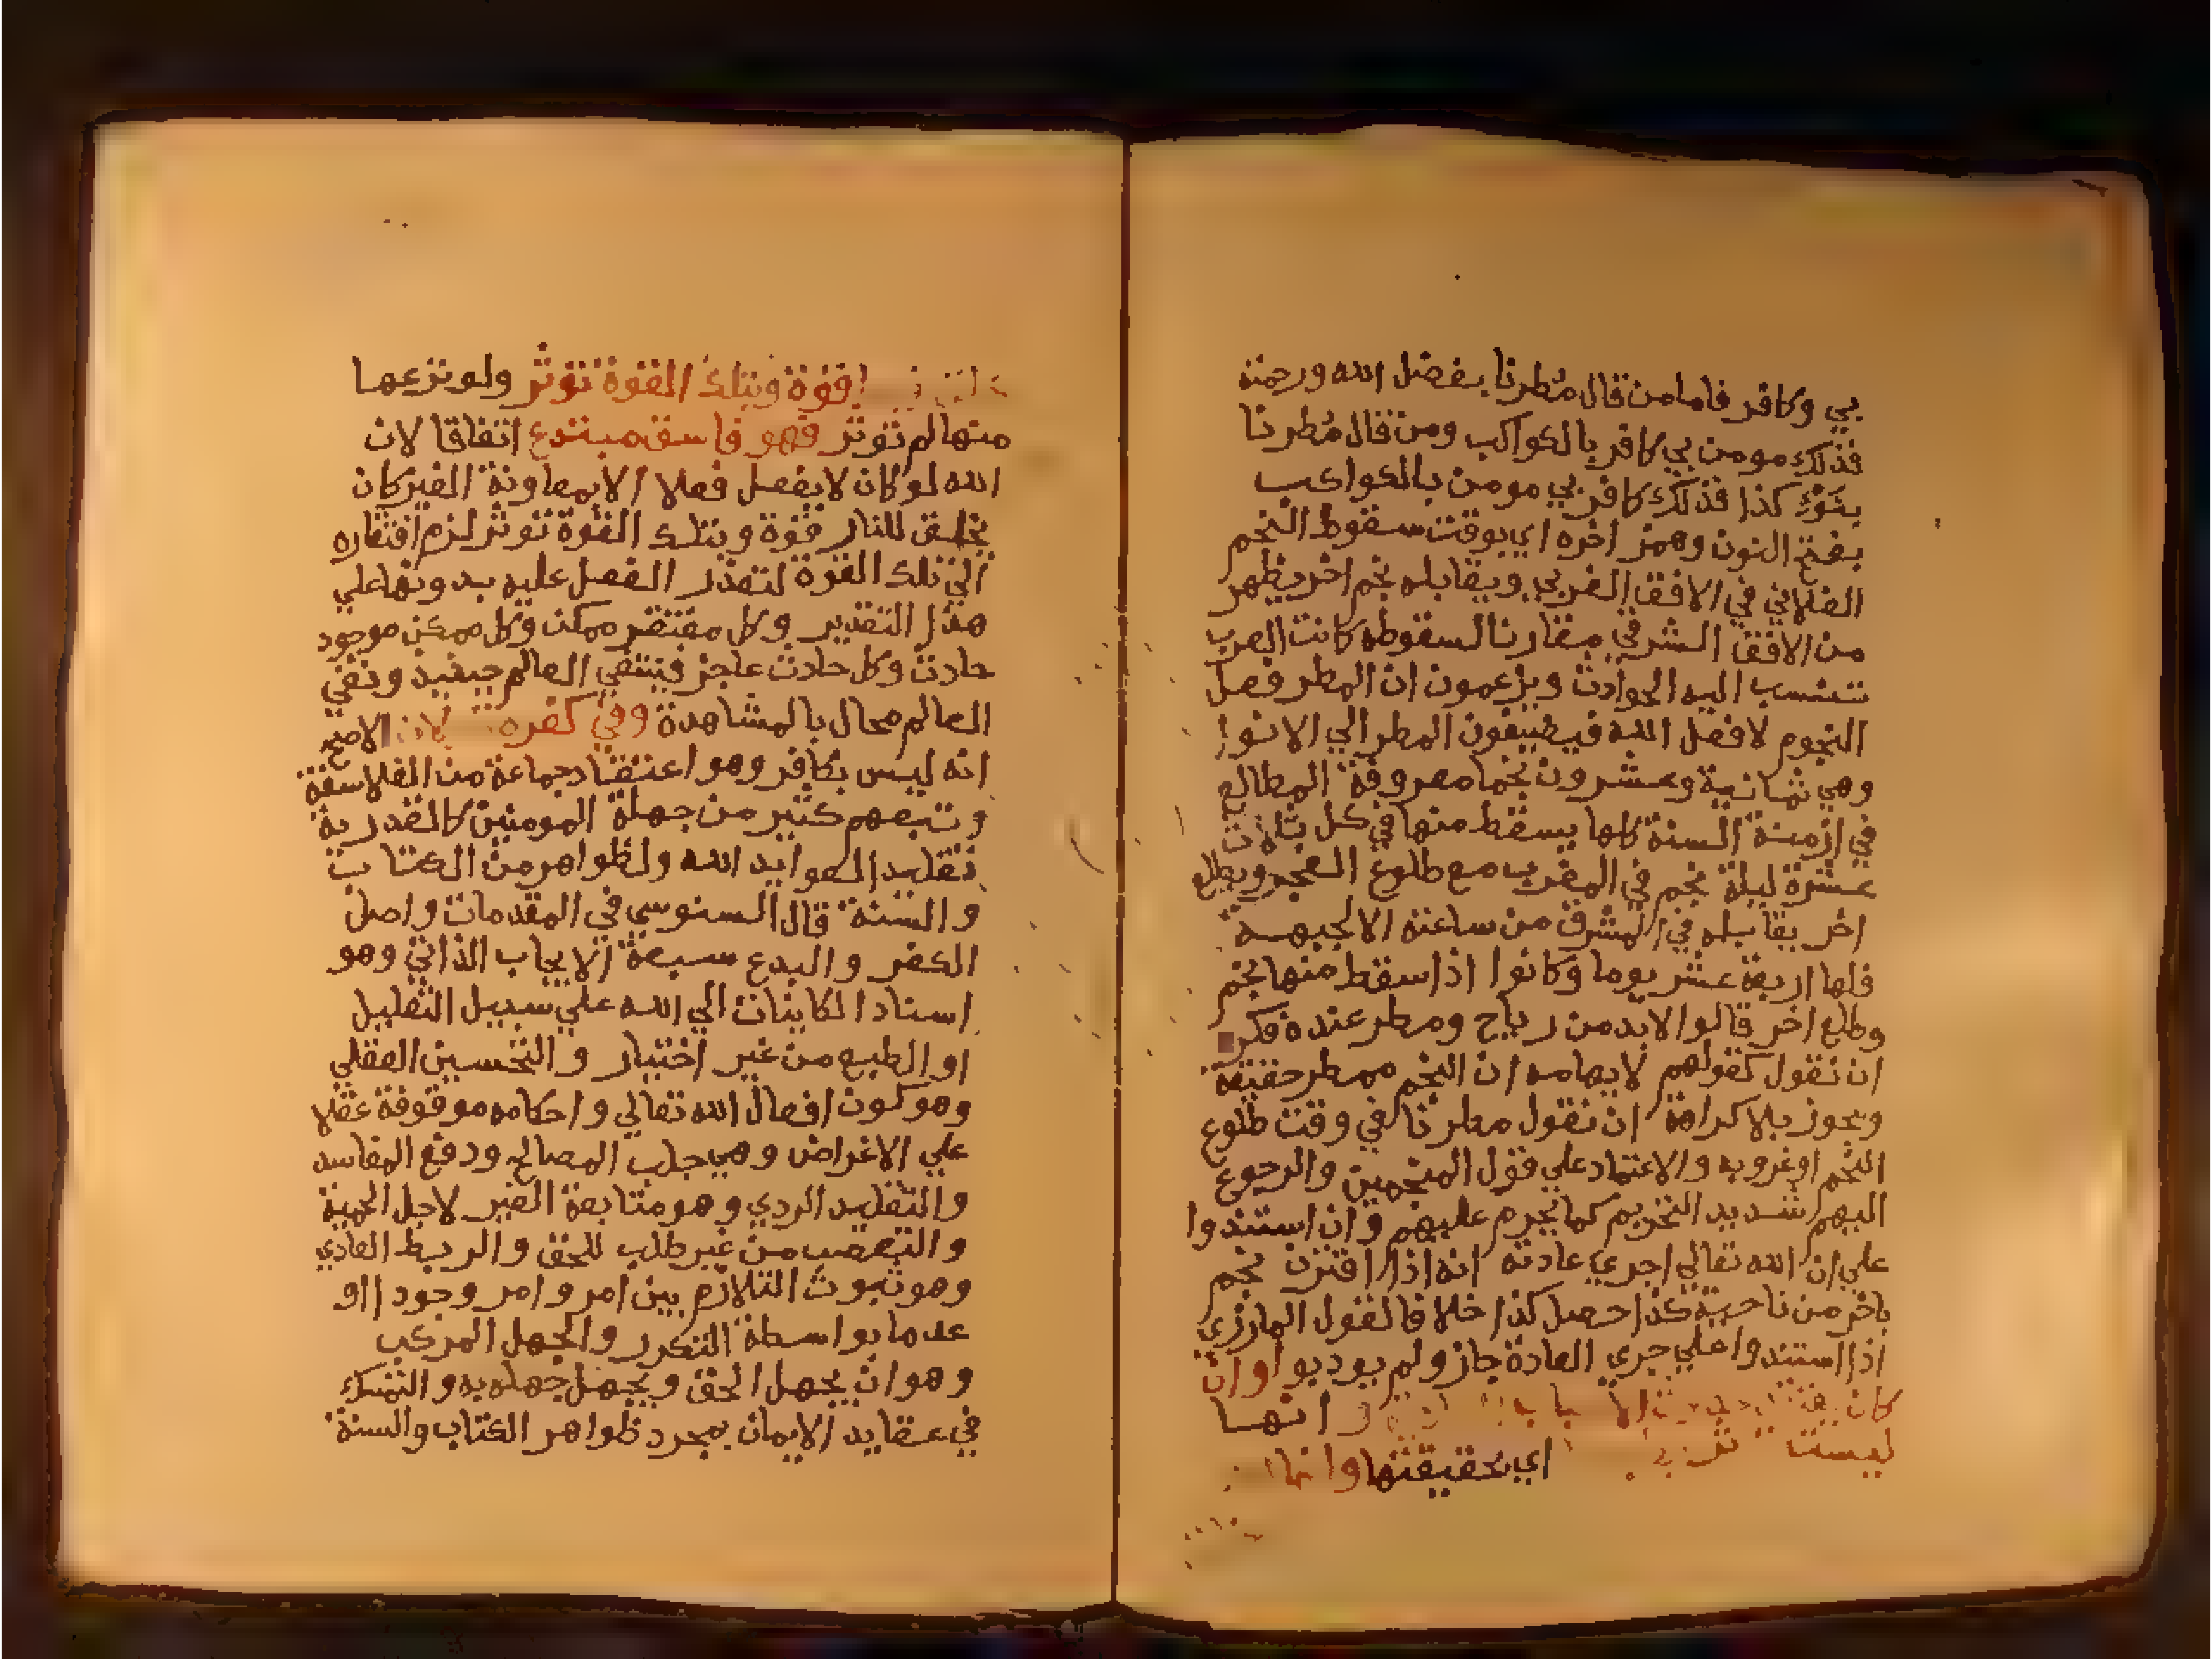 بي وكافر فاما من قال مُطرنا بفضل الله ورحمته
فذلك مومن بي كافر بالكواكب ومن قال مُطرنا
بنَوْء كذا فذلك كافر بي مومن بالكواكب
بفتح النون وهمز اخره اي بوقت سقوط النجم
الفلاني في الافق الغربي ويقابله نجم اخر يظهر
من الافق الشرقي مقارنا لسقوطه كانت العرب
تنسب اليه الحوادث ويزعمون ان المطر فعل
النجوم لا فعل الله فيضيفون المطر الي الانوا
وهي ثمانية وعشرون نجما معروفة المطالع
في ازمنة السنة كلها يسقط منها في كل ثلاث
عشرة ليلة نجم في المغرب مع طلوع الفجر ويطلع
اخر يقابله في المشرق من ساعته الا الجبهة
فلها اربعة عشر يوما وكانوا اذا سقط منها نجم
وطلع اخر قالوا لابد من رياح ومطر عنده فكره
ان نقول كقولهم لايهامه ان النجم ممطر حقيقة
ويجوز بلا كراهة ان نقول مطرنا في وقت طلوع
النجم او غروبه والاعتماد علي قول المنجمين والرجوع
اليهم شديد التحريم كما يحرم عليهم وان استندوا
علي ان الله تعالي اجري عادته انه اذا اقترن نجم
باخر من ناحية كذا حصل كذا خلافا لقول المازري
اذا استندوا علي جري العادة جاز ولم يودبوا وان
كان الاسباب وانها
ليست اي بحقيقتها وانما
قوة وبتلك القوة توثر ولو نزعها
منها لم توثر فهو فاسق مبتدع اتفاقا لان
الله لو كان لا يفعل فعلا الا بمعاونة الغير كان
يخلق للنار قوة وبتلك القوة توثر لزم افتقاره
الي تلك القوة لتعذر الفعل عليه بدونها علي
هذا التقدير وكل مفتقر ممكن وكل ممكن موجود
حادث وكل حادث عاجز فينتفي العالم حينيذ ونفي
العالم محال بالمشاهدة وفي كفره الاصح
انه ليس بكافر وهو اعتقاد جماعة من الفلاسفة
وتبعهم كثير من جهلة المومنين كالقدرية
تقليد العوايد الله ولظواهر من الكتاب
والسنة قال السنوسي في المقدمات واصل
الكفر والبدع سبعة الايجاب الذاتي وهو
اسناد الكاينات الي الله علي سبيل التعليل
او الطبع من غير اختيار والتحسين العقلي
وهو كون افعال الله تعالي واحكامه موقوفة عقلا
علي الاغراض وهي جلب المصالح ودفع المفاسد
والتقليد الردي وهو متابعة الغير لاجل الحمية
والتعصب من غير طلب للحق والربط العادي
وهو ثبوت التلازم بين امر وامر وجودا او
عدما بواسطة التكرر والجهل المركب
وهو ان يجهل الحق ويجهل جهله به والتمسك
في عقايد الايمان بمجرد ظواهر الكتاب والسنة